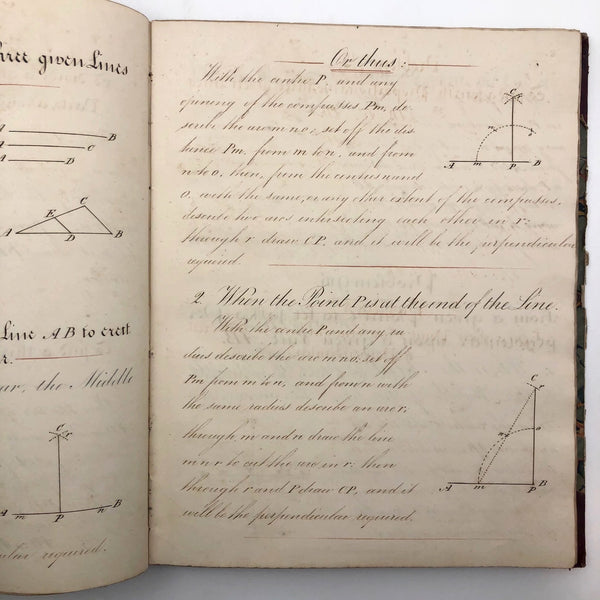 three given Lines
A B
A C
A D
C
E
A D B
Line A B to erect
r.
ar, the Middle
C
r
A m P n B
ular required.
Or thus:
With the centre P and any
opening of the compasses, Pm, de-
scribe the arc m n o; set off the dis-
tance Pm, from m to n, and from
n to o, then, from the centres n and
o, with the same, or any other extent of the compasses,
describe two arcs intersecting each other in r:
through r draw CP, and it will be the perpendicular
required.
C
r
n o
A m P B
2. When the Point P is at the end of the Line.
With the centre P and any ra
dius describe the arc m n o; set off
Pm from m to n, and from n with
the same radius describe an arc r,
through m and n draw the line
m n r to cut the arc in r: then
through r and P draw CP, and it
will be the perpendicular required.
C
r
n o
A m P B